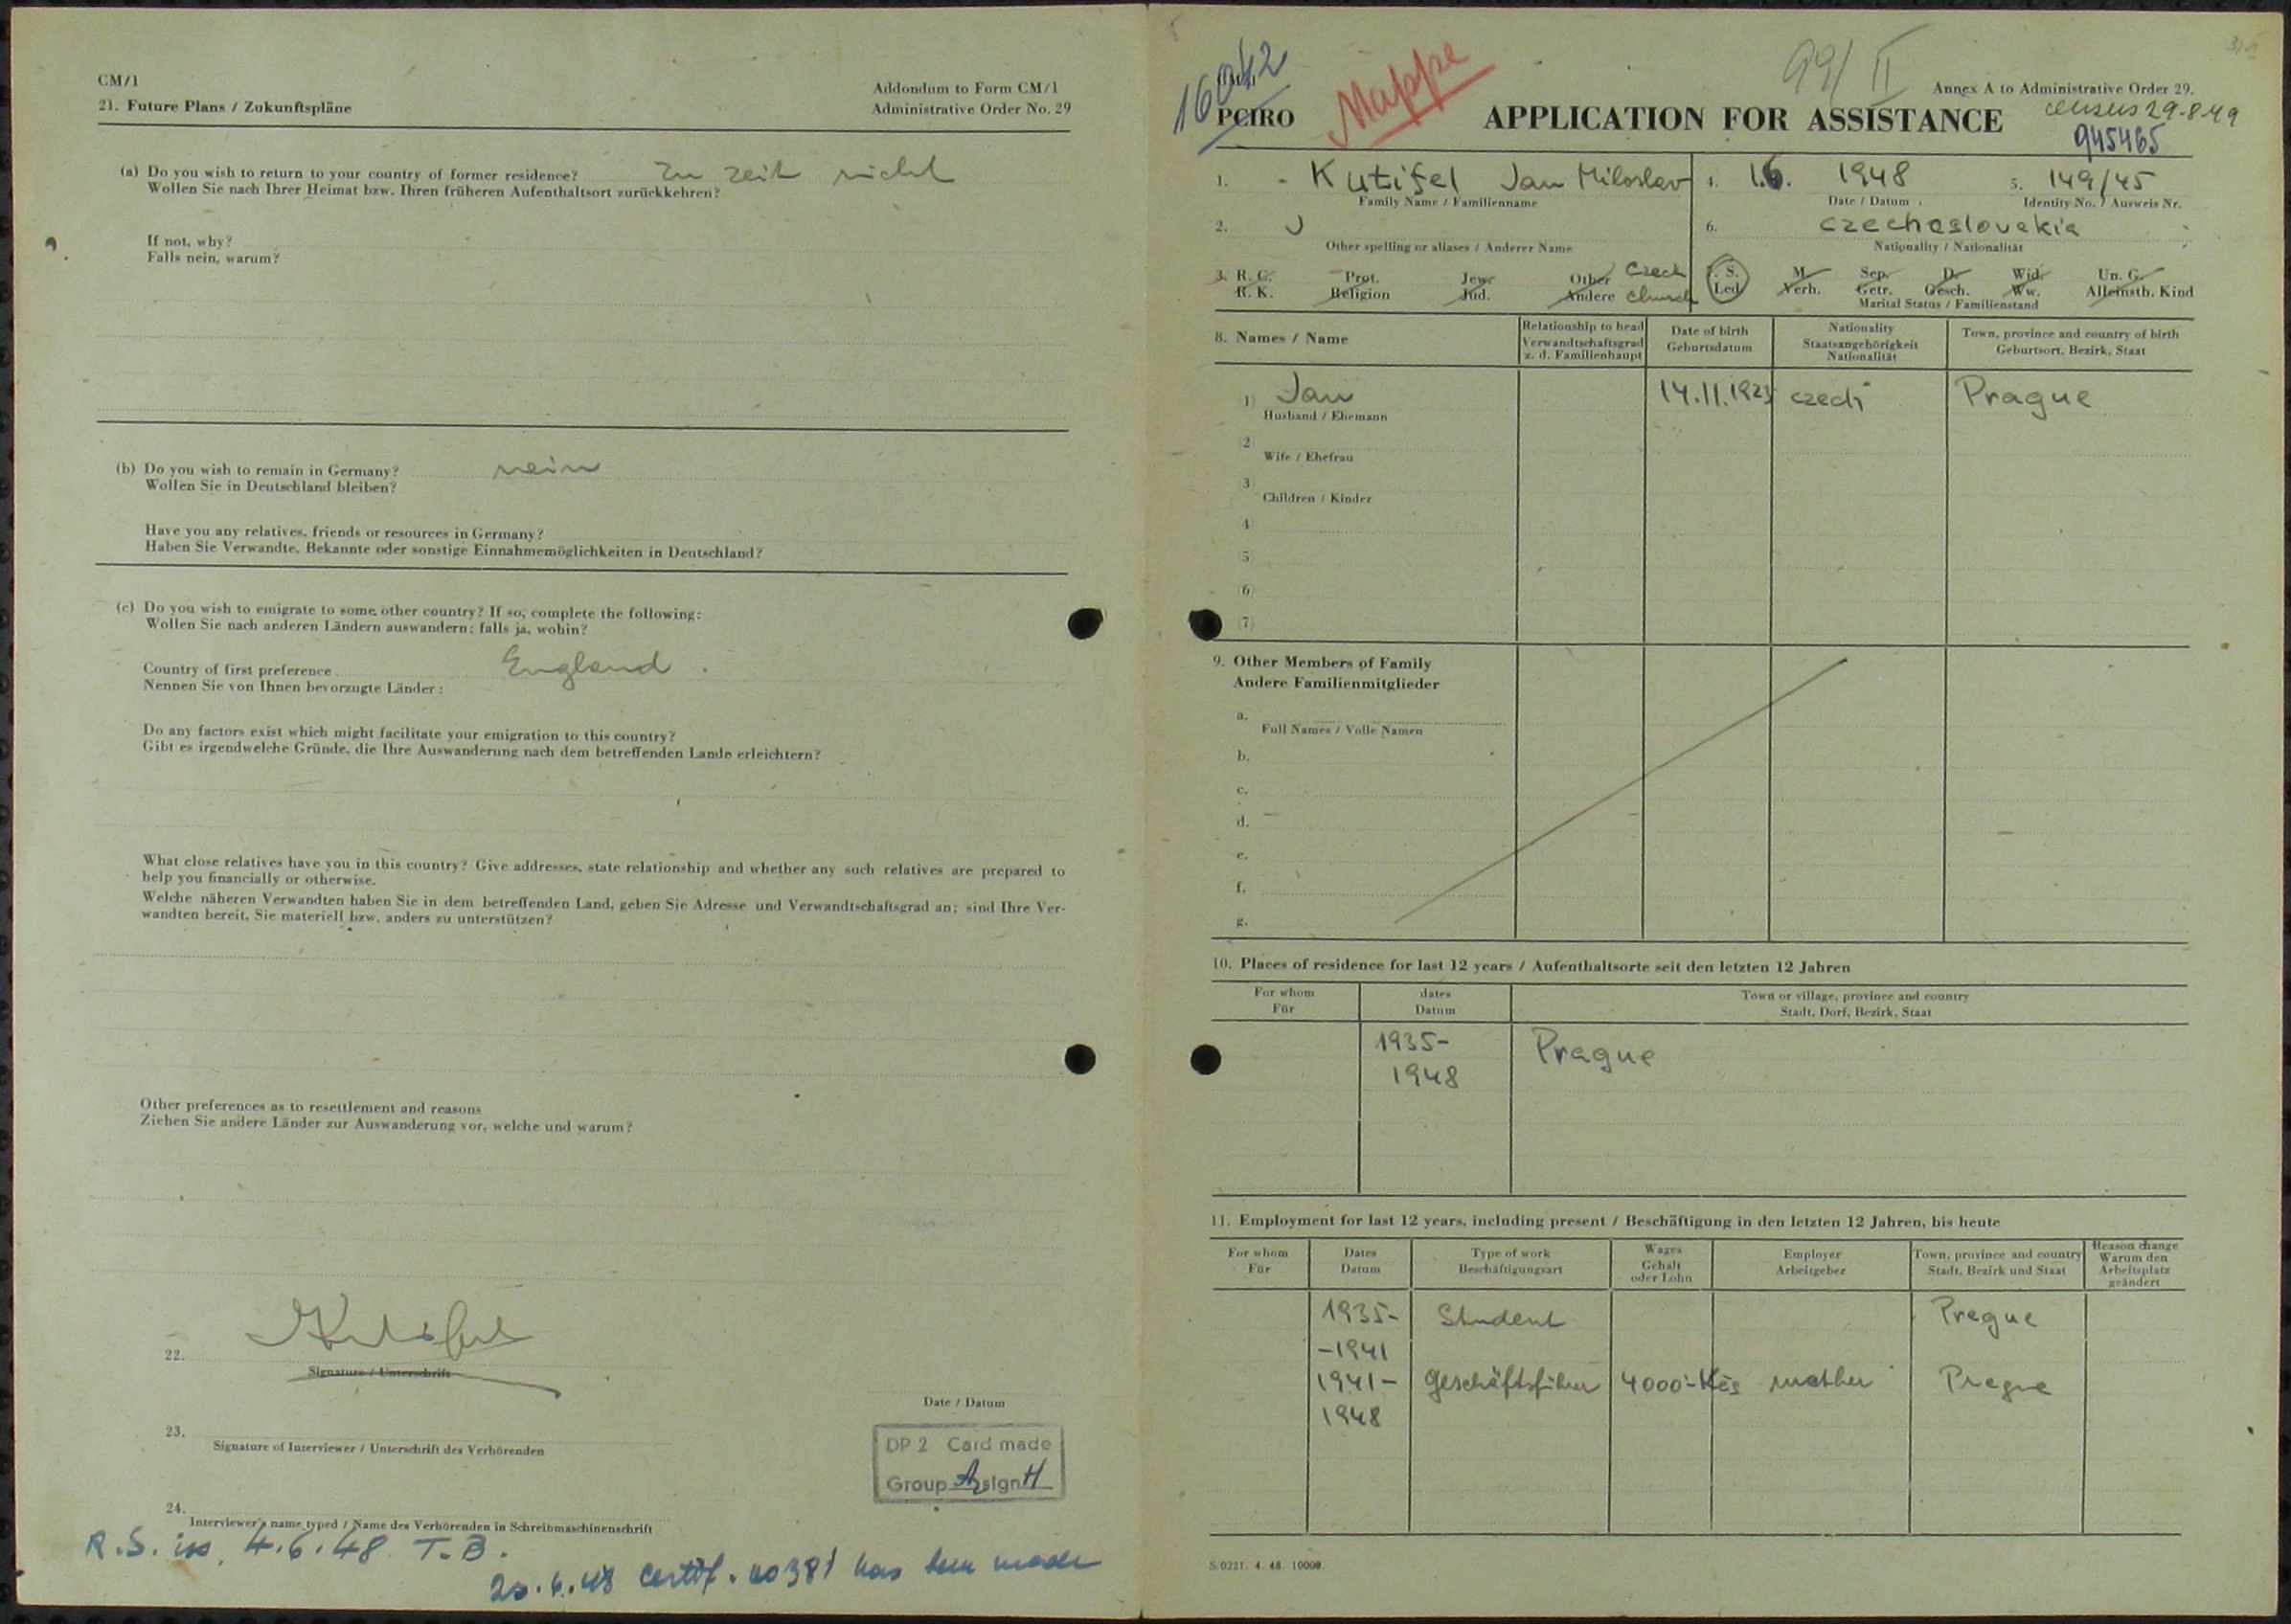 CM/1
21. Future Plans / Zukunftspläne
Addendum to Form CM/1
Administrative Order No. 29
(a) Do you wish to return to your country of former residence? zu zeit nicht
Wollen Sie nach Ihrer Heimat bzw. Ihren früheren Aufenthaltsort zurückkehren?
If not, why?
Falls nein, warum?
(b) Do you wish to remain in Germany? nein
Wollen Sie in Deutschland bleiben?
Have you any relatives, friends or resources in Germany?
Haben Sie Verwandte, Bekannte oder sonstige Einnahmemöglichkeiten in Deutschland?
(c) Do you wish to emigrate to some other country? If so, complete the following:
Wollen Sie nach anderen Ländern auswandern; falls ja, wohin?
Country of first preference England
Nennen Sie von Ihnen bevorzugte Länder:
Do any factors exist which might facilitate your emigration to this country?
Gibt es irgendwelche Gründe, die Ihre Auswanderung nach dem betreffenden Lande erleichtern?
What close relatives have you in this country? Give addresses, state relationship and whether any such relatives are prepared to
help you financially or otherwise.
Welche näheren Verwandten haben Sie in dem betreffenden Land, geben Sie Adresse und Verwandtschaftsgrad an; sind Ihre Ver-
wandten bereit, Sie materiell bzw. anders zu unterstützen?
Other preferences as to resettlement and reasons
Ziehen Sie andere Länder zur Auswanderung vor, welche und warum?
22. Kutifel
Signature / Unterschrift
Date / Datum
23.
Signature of Interviewer / Unterschrift des Verhörenden
DP 2 Card made
Group A Sign H
24.
Interviewer's name typed / Name des Verhörenden in Schreibmaschinenschrift
R.S. iss. 4.6.48 T.B.
25.6.48 certif. no 381 has been made
16042
Mappe
99/II
Annex A to Administrative Order 29.
PCIRO
APPLICATION FOR ASSISTANCE
census 29.8.49
945465
1. Kutifel Jan Miloslav
Family Name / Familienname
4. 1.6. 1948
Date / Datum
5. 149/45
Identity No. / Ausweis Nr.
2.
Other spelling or aliases / Anderer Name
6. Czechoslovakia
Nationality / Nationalität
3. R. C. Prot. Jew. Other Czech
R. K. Religion Jüd. Andere Church
S. M. Sep. D. Wid. Un. G.
Led. Verh. Getr. Gesch. Ww. Alleinsth. Kind
Marital Status / Familienstand
8. Names / Name
Relationship to head
Verwandtschaftsgrad
z. d. Familienhaupt
Date of birth
Geburtsdatum
Nationality
Staatsangehörigkeit
Nationalität
Town, province and country of birth
Geburtsort, Bezirk, Staat
1) Jan 14.11.1923 czech Prague
Husband / Ehemann
2
Wife / Ehefrau
3
Children / Kinder
4
5
6
7
9. Other Members of Family
Andere Familienmitglieder
a.
Full Names / Volle Namen
b.
c.
d.
e.
f.
g.
10. Places of residence for last 12 years / Aufenthaltsorte seit den letzten 12 Jahren
For whom
Für
dates
Datum
Town or village, province and country
Stadt, Dorf, Bezirk, Staat
1935- Prague
1948
11. Employment for last 12 years, including present / Beschäftigung in den letzten 12 Jahren, bis heute
For whom
Für
Dates
Datum
Type of work
Beschäftigungsart
Wages
Gehalt
oder Lohn
Employer
Arbeitgeber
Town, province and country
Stadt, Bezirk und Staat
Reason change
Warum den
Arbeitsplatz
geändert
1935- Student Prague
-1941
1941- Geschäftsführer 4000'- Kčs mother Prague
1948
S/0221. 4. 48. 10000.